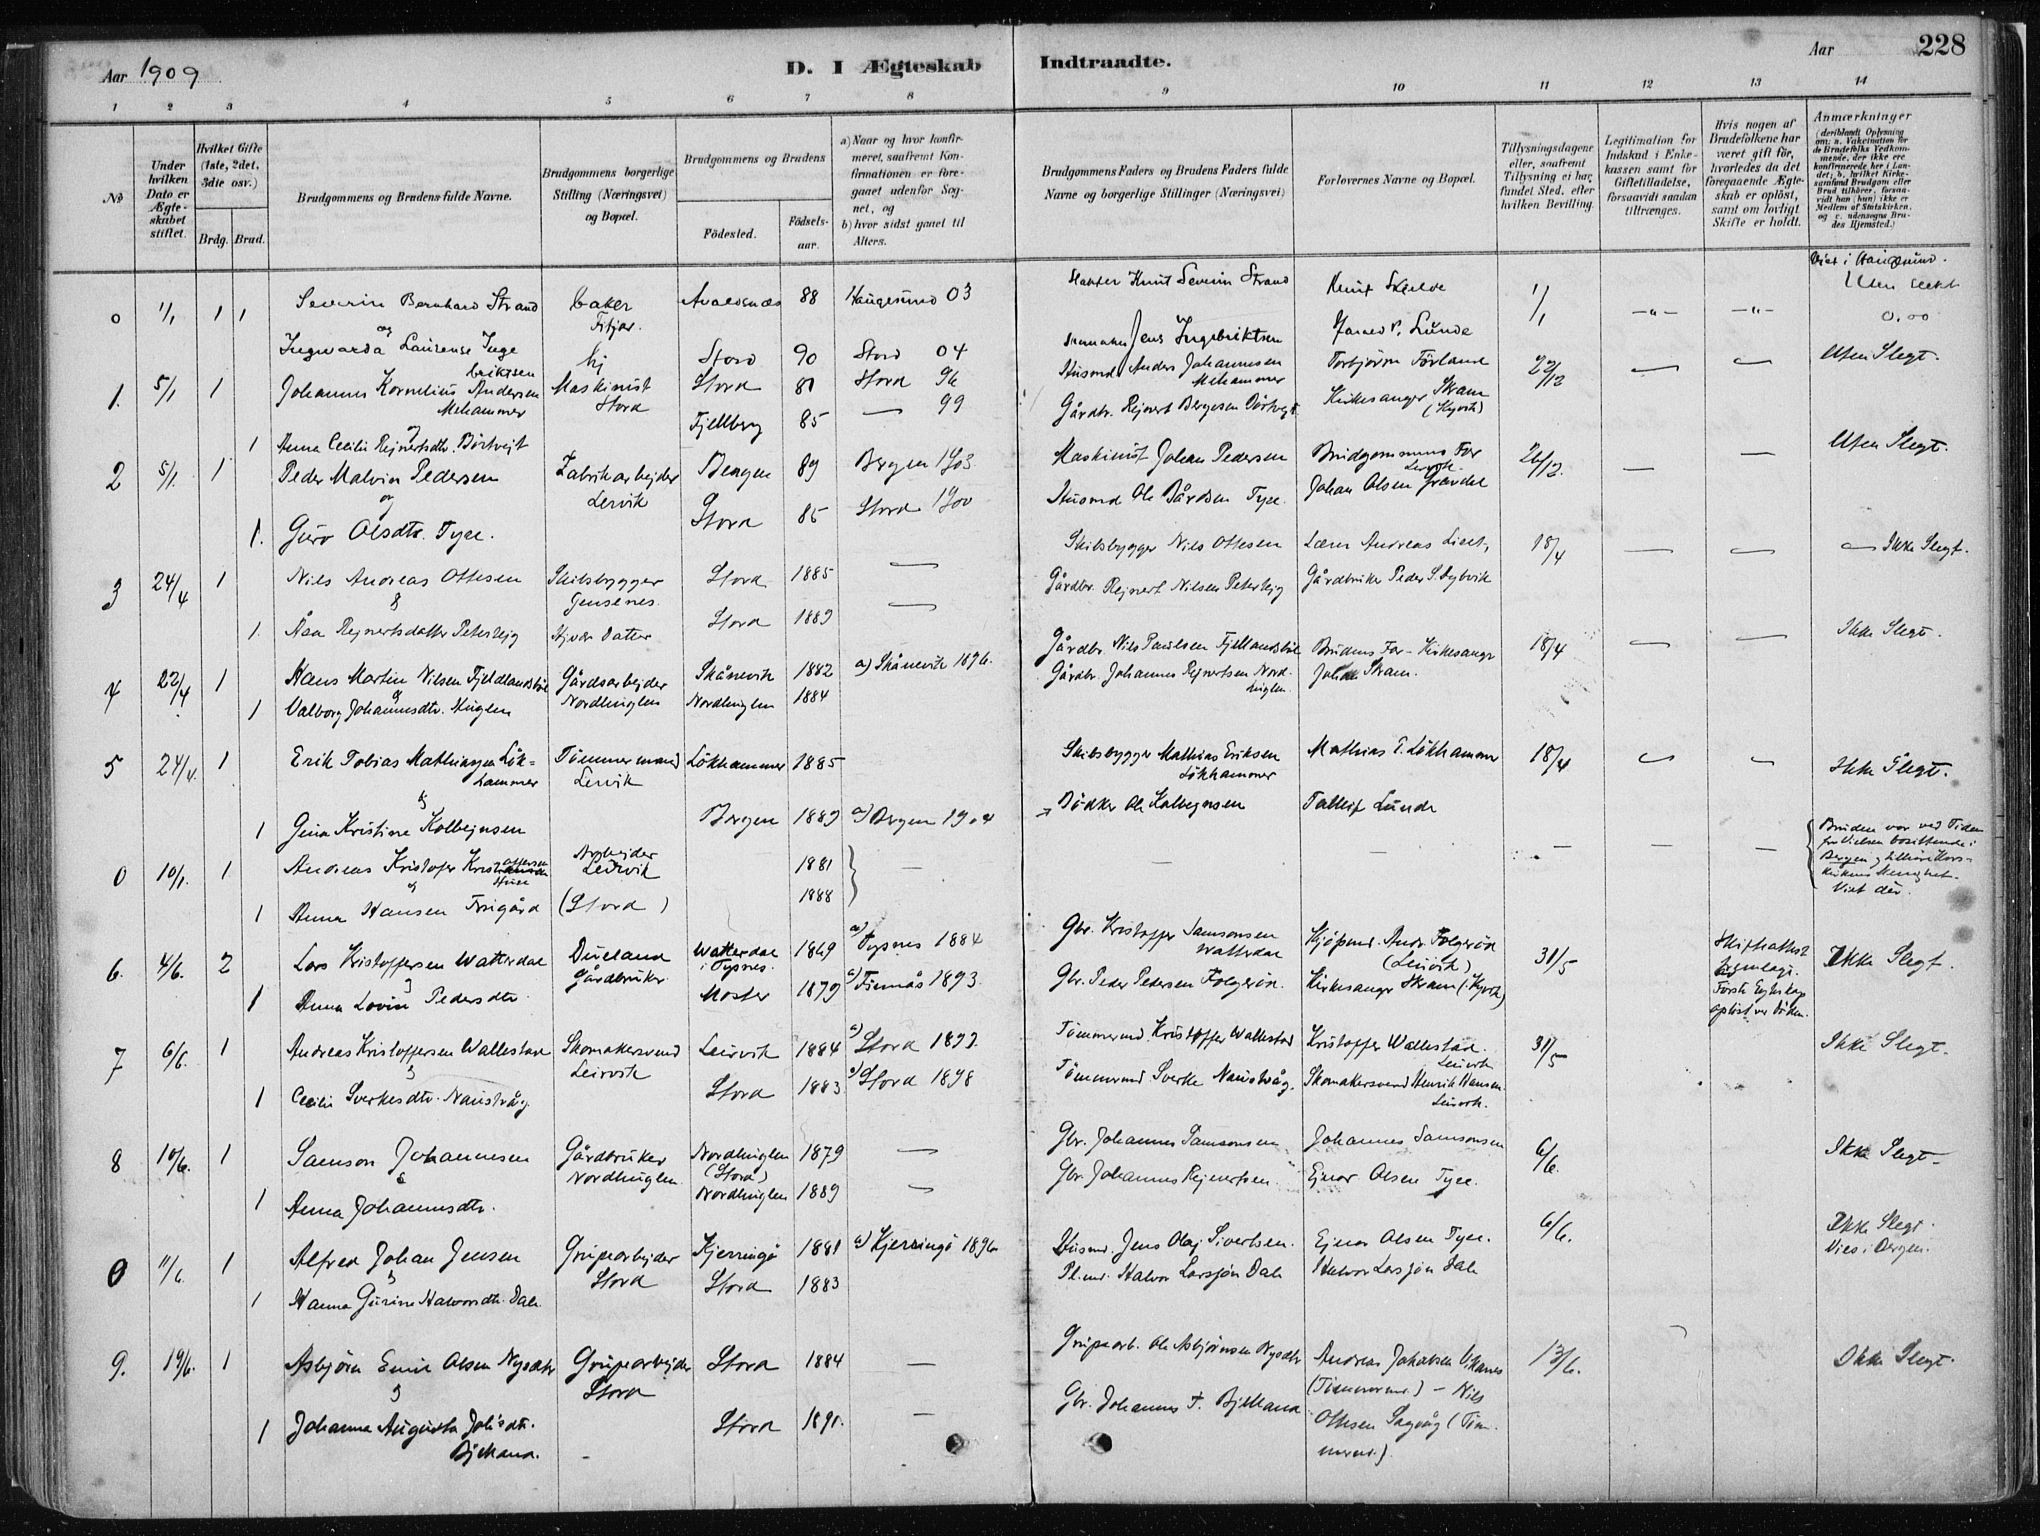 Aar 1909
D. I Ægteskab Indtraadte.
Aar
228
1 2 3 4 5 6 7 8 9 10 11 12 13 14
No
Under hvilken Dato er Ægteskabet stiftet.
Hvilket Gifte (1ste, 2det, 3die osv.)
Brdg. Brud.
Brudgommens og Brudens fulde Navne.
Brudgommens borgerlige Stilling (Næringsvei) og Bopæl.
Brudgommens og Brudens
Födested.
Födselsaar.
a) Naar og hvor konfirmeret, saafremt Konfirmationen er foregaaet udenfor Sognet, og
b) hvor sidst gaaet til Alters.
Brudgommens Faders og Brudens Faders fulde Navne og borgerlige Stillinger (Næringsvei)
Forlovernes Navne og Bopæl.
Tillysningsdagene eller, saafremt Tillysning ei har fundet Sted, efter hvilken Bevilling.
Legitimation for Indskud i Enkekassen samt for Giftetilladelse, forsaavidt saadan tiltrænges.
Hvis nogen af Brudefolkene har været gift för, hvorledes da det foregaaende Ægteskab er oplöst, samt om lovligt Skifte er holdt.
Anmærkninger
0 1/1 1 1 Severin Bernhard Strand baker Fitjar. Avaldsnes 88 Haugesund 03 Knut Severin Strand 1/1 -"- -"- Viet i Haugesund.
og
Ingvarda Laurense Ingebriktsen Stord 90 Stord 04 Jens Ingebriktsen Lunde 0.00
1. 5/1 1 Johannes Kornelius Andersen Mehammer Maskinist Stord Stord 81 Stord 96 Husmd Anders Johannessen Mehammer Torbjörn Förland 22/12 — — Uten Slegt.
og
1 Anna Cecilie Rejnertsdtr. Börtvejt Fjellberg 85 — 99 Gårdbr. Rejnert Bergesen Börtvejt Kirkesanger Skram
2 5/1 1 Peder Malvin Pedersen Fabrikarbejder Lervik Bergen 89 Bergen 1903 Maskinist Johan Pedersen Brudgommens Far Lervik 26/12. — — Uten Slegt.
og
1. Guro Olsdtr. Tyse. Stord 85 Stord 1900 Husmd Ole Bårdsen Tyse. Johan Olsen Grövdal
3 24/4 1 Nils Andreas Ottesen Skibsbygger Jensenes. Stord 1885 — Skibsbygger Nils Ottesen Lærer Andreas Liest, 18/4 — — — Ikke Slegt.
&
1. Åsa Rejnertsdatter Petersejg Hjvær Datter Stord 1889 — Gårdbr. Rejnert Nilsen Petersejg Gårdbruker Peder S. Dybvik
4 22/4 1 Hans Martin Nilsen Fjeldlandsböe Gårdsarbejder Nordhuglen Skånevik 1882 a) Skånevik 1896. Gårdbr. Nils Paulsen Fjellandsböe Brudens Far - Kirkesangr 18/4 — — Ikke Slegt.
&
1 Valborg Johannesdtr. Huglen Nordhuglen 1884 Gårdbr. Johannes Rejnertsen Nordhuglen Skram.
5 24/4. 1 Erik Tobias Mathiassen Lökhammer Tömmermand Lervik Lökhammer 1885 Skibsbygger Mathias Eriksen Lökhammer Mathias E. Lökhammer 18/4 — — Ikke Slegt.
&
1 Gina Kristine Kolbejnsen Bergen 1889 a) Bergen 1904 Bödker Ole Kolbejnsen Tollejf Lunde
0 10/1. 1 Andreas Kristofer Kristoffersen Huse Arbejder Leirvik (Stord) 1881 — — — — — — Bruden var ved Tiden for Vielsen bosittende i Bergen og tillhörer Korskirkens Menighet. Viet der.
&
1 Anna Hansen Frugård 1888
6. 4/6. 2 Lars Kristoffersen Watterdal Dueland Gårdbruker Watterdal i Tysnes. 1869 a) Tysnes 1884 Gbr. Kristoffer Samsonsen Watterdal Kjöpmd. Andr. Folgerön (Leirvik) 31/5 Ikke Slegt.
&
1 Anna Lovise Pedersdtr. Moster 1879 a) Finnås 1893. Gbr. Peder Pedersen Folgerön. Kirkesangr Skram Förste Egteskap oplöst ved Döden.
7 6/6. 1 Andreas Kristoffersen Wallestad Skomakersvend Leirvik Leirvik 1884 a) Stord 1899. Tömmermd Kristoffer Wallestad Kristoffer Wallestad. Leirvik 31/5 Ikke Slegt.
&
1 Cecilie Sverkesdtr. Naustvåg. Stord 1883 a) Stord 1898 Tömmermd Sverke Naustvåg. Skomakersvend Henrik Hansen Leirvik.
8 10/6. 1 Samson Johannesen Gårdbruker Nordhuglen Nordhuglen (Stord) 1879 — Gbr. Johannes Samsonsen Johannes Samsonsen 6/6. Ikke Slegt.
&
1 Anna Johannesdtr. Nordhuglen 1889 — Gbr. Johannes Rejnertsen. Ejnar Olsen Tyse.
0 11/6. 1 Alfred Johan Jensen Grubearbejder Stord Kjerringö 1881 a) Kjerringö 1896 Husmd. Jens Olaj Sivertsen. Ejnar Olsen Tyse. 6/6. Ikke Slegt. Vies i Bergen.
&
1 Hanna Gurine Halvorsdtr. Dale. Stord 1883 Pl.md. Halvor Larsjön Dale Halvor Larsjön Dale
9. 19/6. 1 Asbjörn Emil Olsen Nysæter Grubearbejder Stord Stord 1884 — Grubearb. Ole Asbjörnsen Nysæter Andreas Jakobsen Vikanes (Tömmermd.) - Nils 13/6. Ikke Slegt.
&
1 Johanna Augusta Joh'sdtr. Bjelland. Stord 1891. — Gbr. Johannes T. Bjelland Ottesen Sagvåg (Tömmermd.).